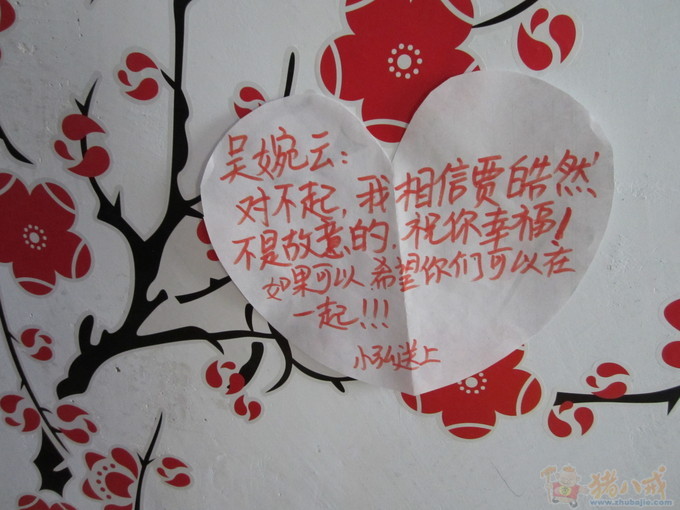 吴婉云：
对不起，我相信贾皓然
不是故意的，祝你幸福！
如果可以 希望你们可以在
一起！！！
小弘送上
猪八戒
www.zhubajie.com